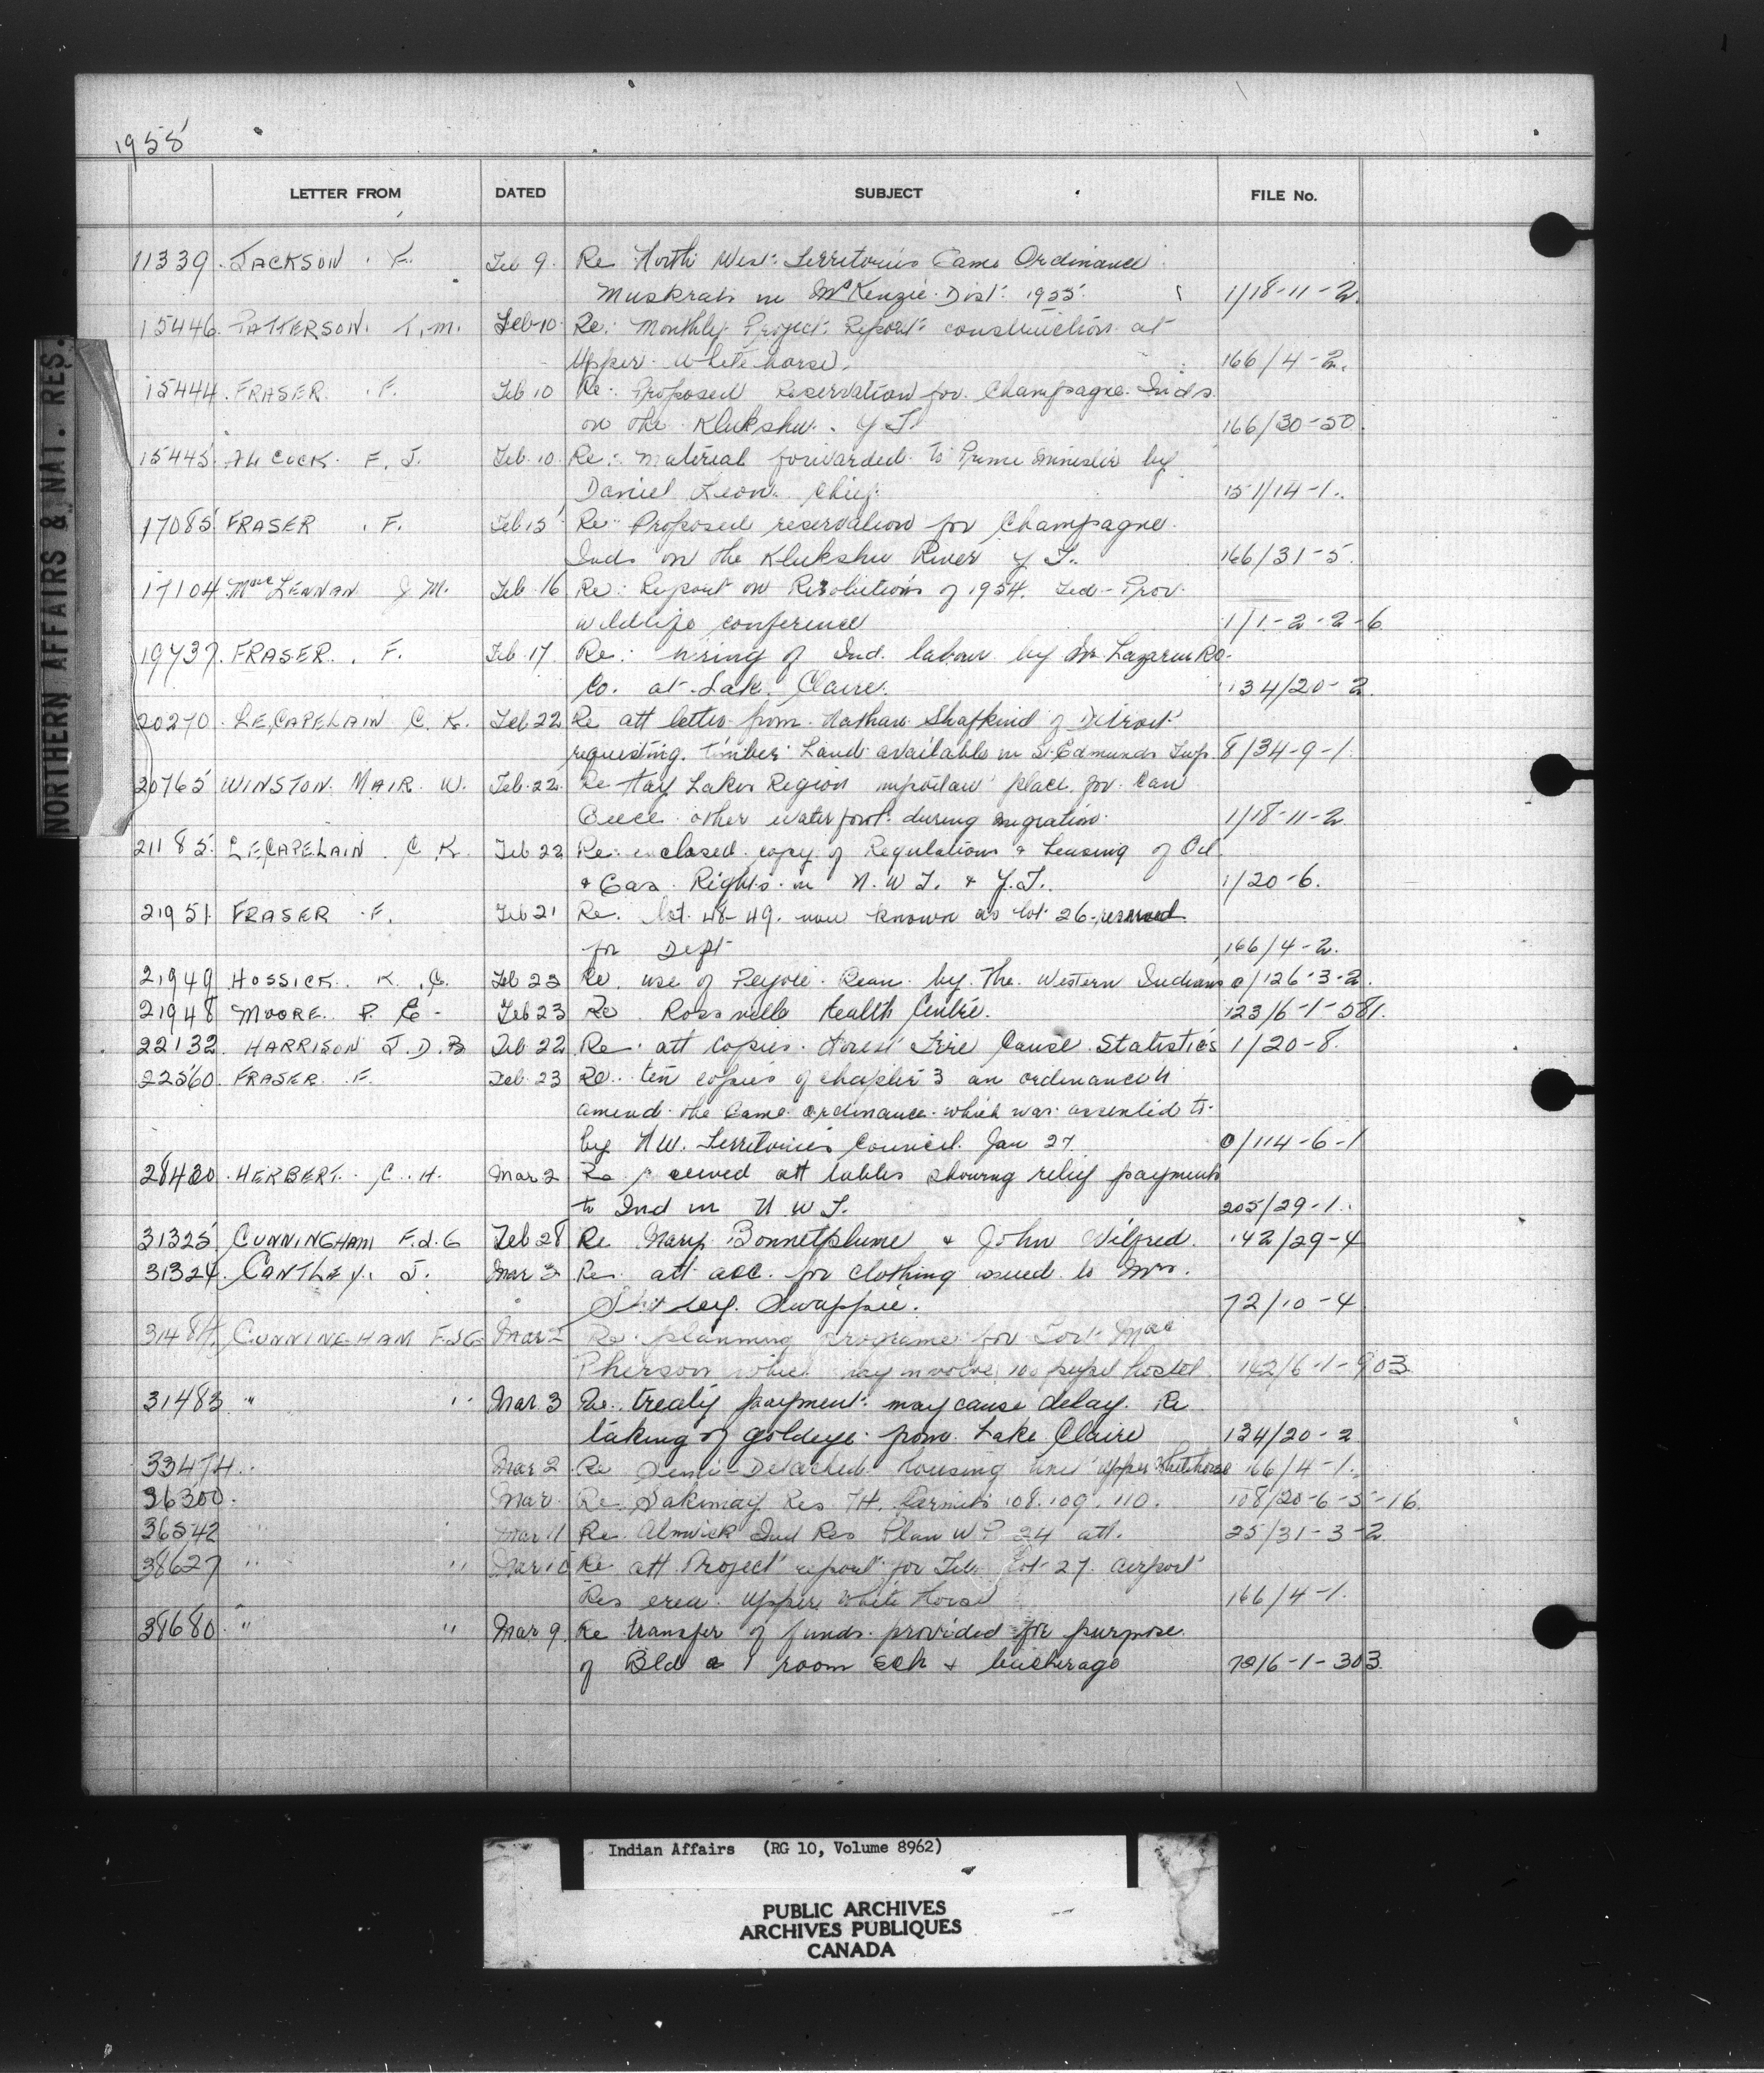 1955
LETTER FROM DATED SUBJECT FILE No.
11339. JACKSON. F. Feb 9. Re North West Territories Game Ordinance
Muskrats in McKenzie Dist. 1955. 1/18-11-2.
15446. PATTERSON. T.M. Feb 10 Re: Monthly Project Report construction at
Upper Whitehorse. 166/4-2.
15444. FRASER. F. Feb 10 Re: Proposed Reservation for Champagne Inds
on the Klukshu. Y T. 166/30-50.
15445. F. J. Feb. 10. Re: Material forwarded to Prime Minister by
Daniel Leon. Chief. 151/14-1.
17085 FRASER. F. Feb 15 Re: Proposed reservation for Champagne
Inds on the Klukshu River Y T. 166/31-5.
17104 MacLENNAN J M. Feb. 16 Re: Report on Resolutions of 1954. Fed-Prov.
wildlife conference 1/1-2-2-6
19737. FRASER. F. Feb. 17. Re: hiring of Ind. labour by
Co. at Lake Claire. 134/20-2.
20270. LE,CAPELAIN C.K. Feb 22 Re att letter from Nathan Shafkind of Detroit
requesting. timber Land available in St Edmunds Twp. 8/34-9-1
20765 WINSTON MAIR. W. Feb. 22. Re Hay Lakes Region important place for Can
Geese other waterfowl during migration. 1/18-11-2
21185. LE,CAPELAIN. C K. Feb 22 Re: enclosed copy of Regulations & Leasing of Oil
& Gas Rights in N.W T. & Y.T. 1/20-6.
21951. FRASER. F. Feb 21 Re. lot 48-49. now known as lot 26 reserved
for Dept 166/4-2.
21949 HOSSICK. K. C. Feb 23 Re. use of Peyote Bean by the Western Indians 0/126-3-2.
21948 MOORE. P. E. Feb 23 Re Rossville Health Centre. 123/6-1-581.
22132. HARRISON J.D.B Feb 22 Re. att copies. Forest Fire Cause Statistics 1/20-8.
22560. FRASER. F. Feb. 23 Re. ten copies of chapter 3 an ordinance to
amend the Game ordinance which was assented to
by N.W. Territories Council. Jan 27. 0/114-6-1
28420 HERBERT. C. H. Mar 2 Re att tables showing relief payments
to Ind in N W T. 205/29-1.
31325 CUNNINGHAM F.J.G Feb 28 Re Mary Bonnetplume & John Wilfred. 142/29-4
31324. CANTLEY. J. Mar 3 Re. att acc. for clothing issued to Mrs.
Swappie. 72/10-4
31484. CUNNINGHAM F.J.G. Mar 2 Re planning programe for Fort Mac
Pherson which may involve 100 pupil hostel 142/6-1-903
31483 " " Mar. 3 Re. treaty payment may cause delay. Re
taking of goldeye from Lake Claire 134/20-2
33474. Mar 2 Re Semi-Detached housing unit upper Whitehorse 166/4-1.
36300. Mar Re Sakimay Res. 74. Permits 108. 109. 110. 108/20-6-5-16.
36542 " " Mar 11 Re. Alnwick Ind Res Plan W P 24 att. 25/31-3-2
38627 " " Mar 10 Re att Project report for Feb. Lot 27. airport
Res area. Upper White Horse 166/4-1.
38680. " " Mar 9. Re transfer of funds provided for purpose
of Bld a 1 room sch & teacherage 72/6-1-303.
NORTHERN AFFAIRS & NAT. RES.
Indian Affairs (RG 10, Volume 8962)
PUBLIC ARCHIVES
ARCHIVES PUBLIQUES
CANADA